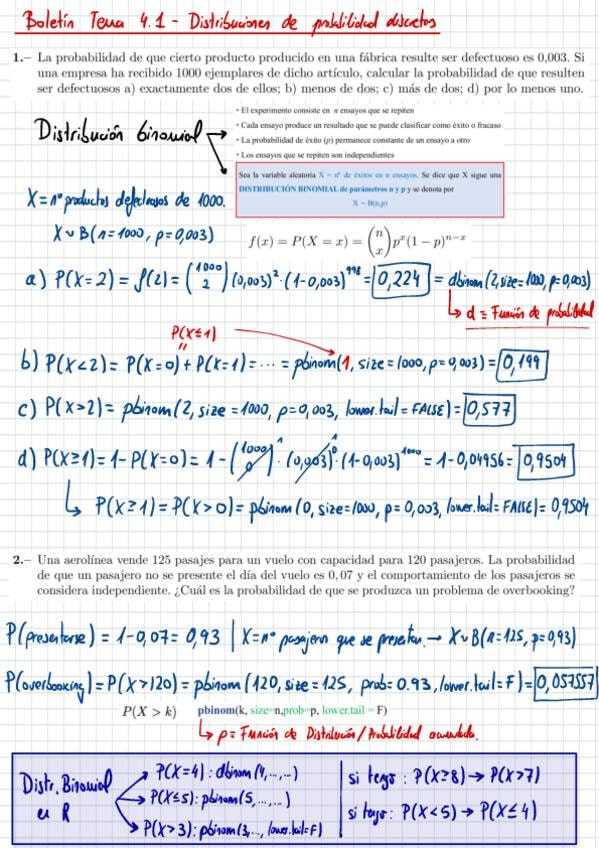 Boletín Tema 4.1 - Distribuciones de probabilidad discretas
1.– La probabilidad de que cierto producto producido en una fábrica resulte ser defectuoso es 0,003. Si
una empresa ha recibido 1000 ejemplares de dicho artículo, calcular la probabilidad de que resulten
ser defectuosos a) exactamente dos de ellos; b) menos de dos; c) más de dos; d) por lo menos uno.
• El experimento consiste en n ensayos que se repiten
• Cada ensayo produce un resultado que se puede clasificar como éxito o fracaso
• La probabilidad de éxito (p) permanece constante de un ensayo a otro
• Los ensayos que se repiten son independientes
Distribución binomial
Sea la variable aleatoria X = nº de éxitos en n ensayos. Se dice que X sigue una
DISTRIBUCIÓN BINOMIAL de parámetros n y p y se denota por
X ~ B(n,p)
X = nº productos defectuosos de 1000.
X ~ B(n=1000, p=0,003)
f(x) = P(X = x) = (n x) p^x (1 − p)^{n−x}
a) P(X=2) = f(2) = (1000 2) (0,003)² · (1-0,003)^998 = 0,224 = dbinom(2, size=1000, p=0,003)
↳ d = Función de probabilidad
P(X≤1)
b) P(X<2) = P(X=0) + P(X=1) = ··· = pbinom(1, size=1000, p=0,003) = 0,199
c) P(X>2) = pbinom(2, size=1000, p=0,003, lower.tail=FALSE) = 0,577
d) P(X≥1) = 1-P(X=0) = 1 - (1000 0)^1 · (0,003)^0 · (1-0,003)^1000 = 1-0,04956 = 0,9504
↳ P(X≥1) = P(X>0) = pbinom(0, size=1000, p=0,003, lower.tail=FALSE) = 0,9504
2.– Una aerolínea vende 125 pasajes para un vuelo con capacidad para 120 pasajeros. La probabilidad
de que un pasajero no se presente el día del vuelo es 0,07 y el comportamiento de los pasajeros se
considera independiente. ¿Cuál es la probabilidad de que se produzca un problema de overbooking?
P(presentarse) = 1-0,07 = 0,93 | X = nº pasajeros que se presentan → X ~ B(n=125, p=0,93)
P(overbooking) = P(X>120) = pbinom(120, size=125, prob=0.93, lower.tail=F) = 0,057557
P(X > k) pbinom(k, size=n,prob=p, lower.tail = F)
↳ p = Función de Distribución / Probabilidad acumulada.
Distr. Binomial
en R
P(X=4) : dbinom(4,...,...)
P(X≤5) : pbinom(5,...,...)
P(X>3) : pbinom(3,..., lower.tail=F)
si tengo : P(X≥8) → P(X>7)
si tengo : P(X<5) → P(X≤4)